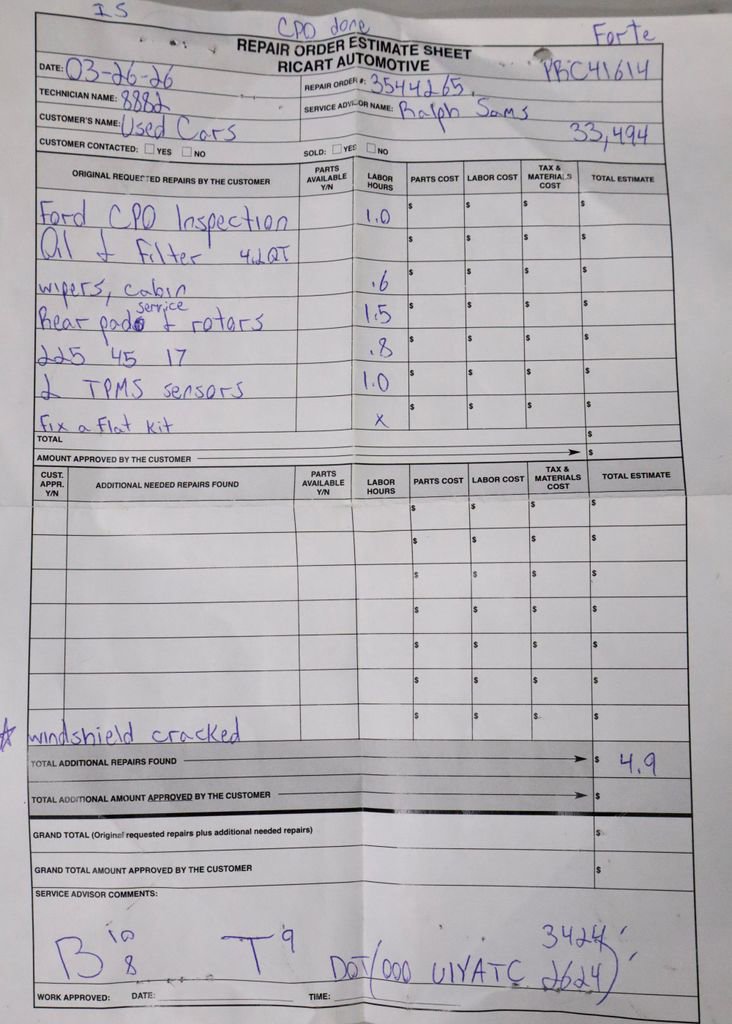 IS
CPO done
Forte
REPAIR ORDER ESTIMATE SHEET
RICART AUTOMOTIVE
PRC41614
DATE: 03-26-26
REPAIR ORDER #: 3544265
TECHNICIAN NAME: 8882
SERVICE ADVISOR NAME: Ralph Sams
CUSTOMER'S NAME: Used Cars
33,494
CUSTOMER CONTACTED: YES NO
SOLD: YES NO
ORIGINAL REQUESTED REPAIRS BY THE CUSTOMER PARTS AVAILABLE Y/N LABOR HOURS PARTS COST LABOR COST TAX & MATERIALS COST TOTAL ESTIMATE
Ford CPO Inspection 1.0 $ $ $ $
Oil & Filter 4.2QT $ $ $ $
wipers, cabin .6 $ $ $ $
Rear pads service & rotors 1.5 $ $ $ $
225 45 17 .8 $ $ $ $
2 TPMS sensors 1.0 $ $ $ $
Fix a Flat Kit x $ $ $ $
TOTAL $
AMOUNT APPROVED BY THE CUSTOMER $
CUST. APPR. Y/N ADDITIONAL NEEDED REPAIRS FOUND PARTS AVAILABLE Y/N LABOR HOURS PARTS COST LABOR COST TAX & MATERIALS COST TOTAL ESTIMATE
$ $ $ $
$ $ $ $
$ $ $ $
$ $ $ $
$ $ $ $
$ $ $ $
windshield cracked $ $ $ $
TOTAL ADDITIONAL REPAIRS FOUND $ 4.9
TOTAL ADDITIONAL AMOUNT APPROVED BY THE CUSTOMER $
GRAND TOTAL (Original requested repairs plus additional needed repairs) $
GRAND TOTAL AMOUNT APPROVED BY THE CUSTOMER $
SERVICE ADVISOR COMMENTS:
B 10 8 T 9
3424
DOT/000 U1YATC 2624
WORK APPROVED: DATE: TIME: